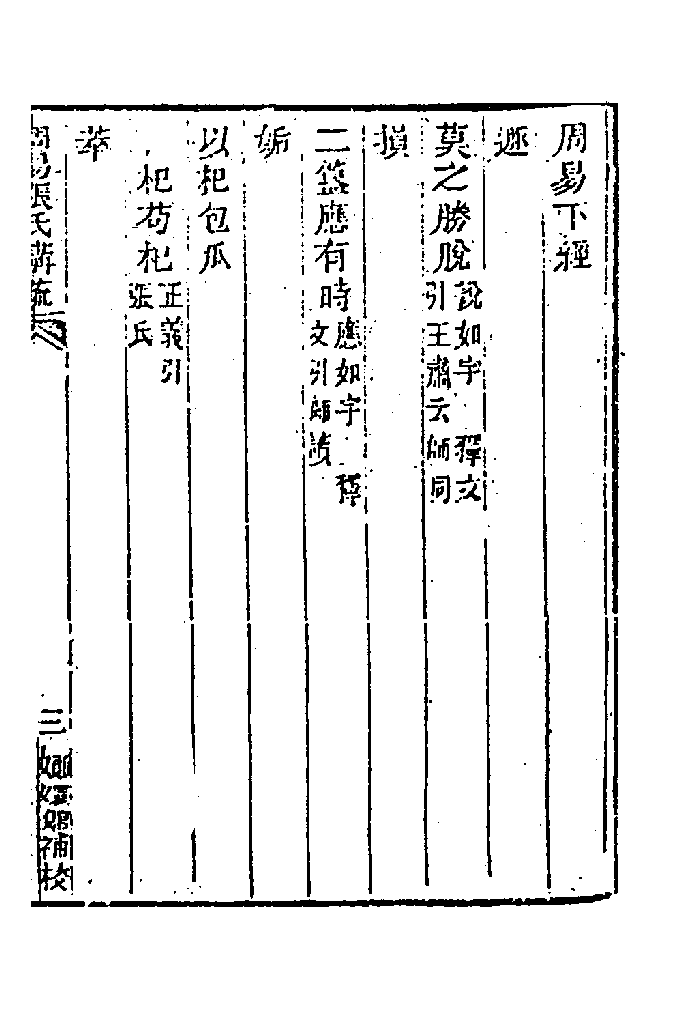 周易下經
遯
莫之勝脫說如字 釋文引王肅云師同
損
二簋應有時應如字 釋文引師讀
姤
以杞包瓜
杞苟杞正義引張氏
萃
周易張氏講疏
三
嫏嬛館補校